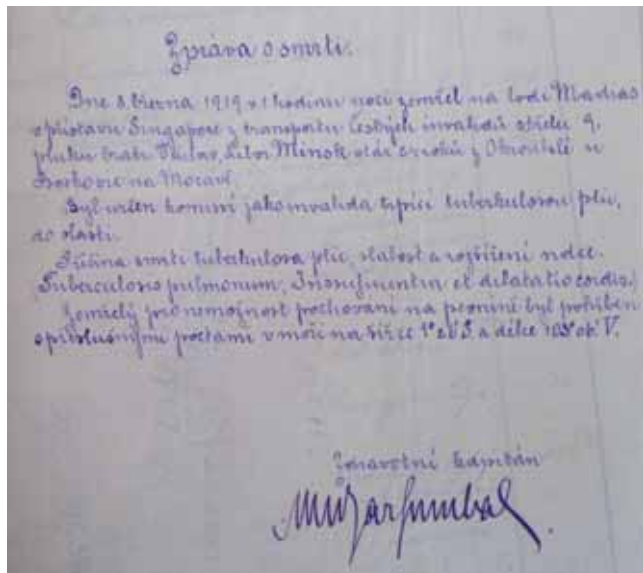 Zpráva o smrti.
Dne 8. března 1919 v 1 hodinu noci zemřel na lodi Madras
v přístavu Singapore z transportu českých invalidů střelec 9.
pluku bratr Václav, Libor Minsk stár roků z Okrouhlé u
Boskovic na Moravě.
Byl určen komisí jako invalida trpící tuberkulosou plic,
do vlasti.
Příčina smrti tuberkulosa plic, slabost a rozšíření srdce.
Tuberculosis pulmonum, Insuficientia et dilatatio cordis.
Zemřelý pro nemožnost pochování na pevnině byl pohřben
s příslušnými poctami v moři na šířce 1° a délce 103° V.
Zdravotní kapitán